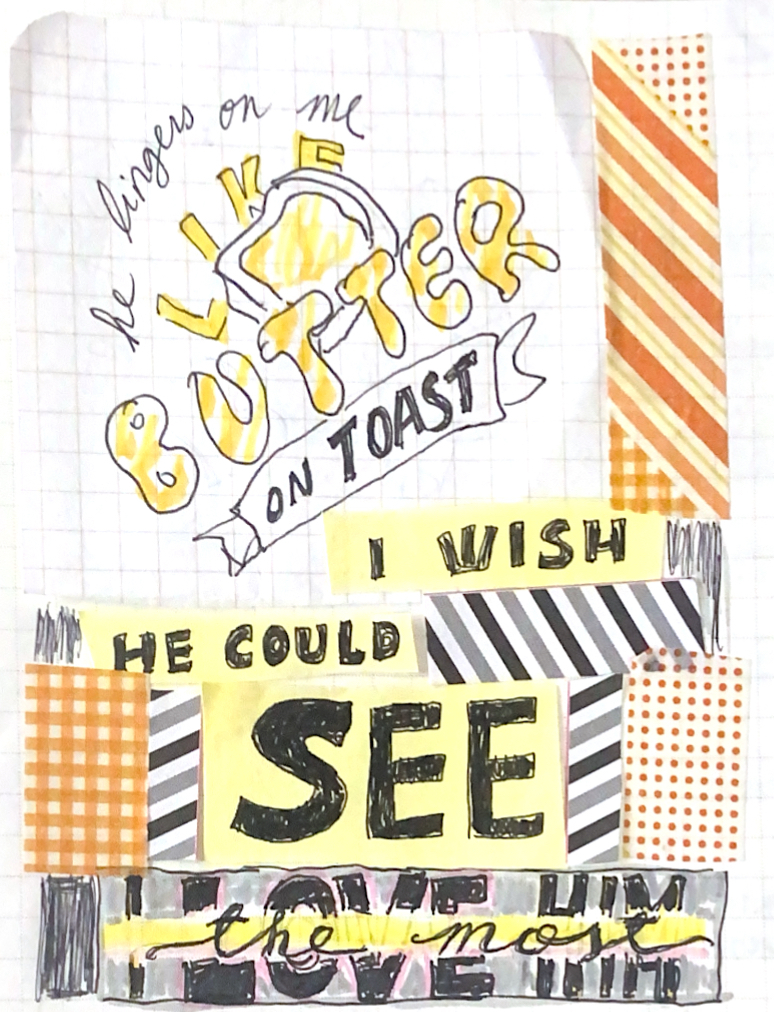 he lingers on me
LIKE
BUTTER
ON TOAST
I WISH
HE COULD
SEE
I LOVE HIM
the most